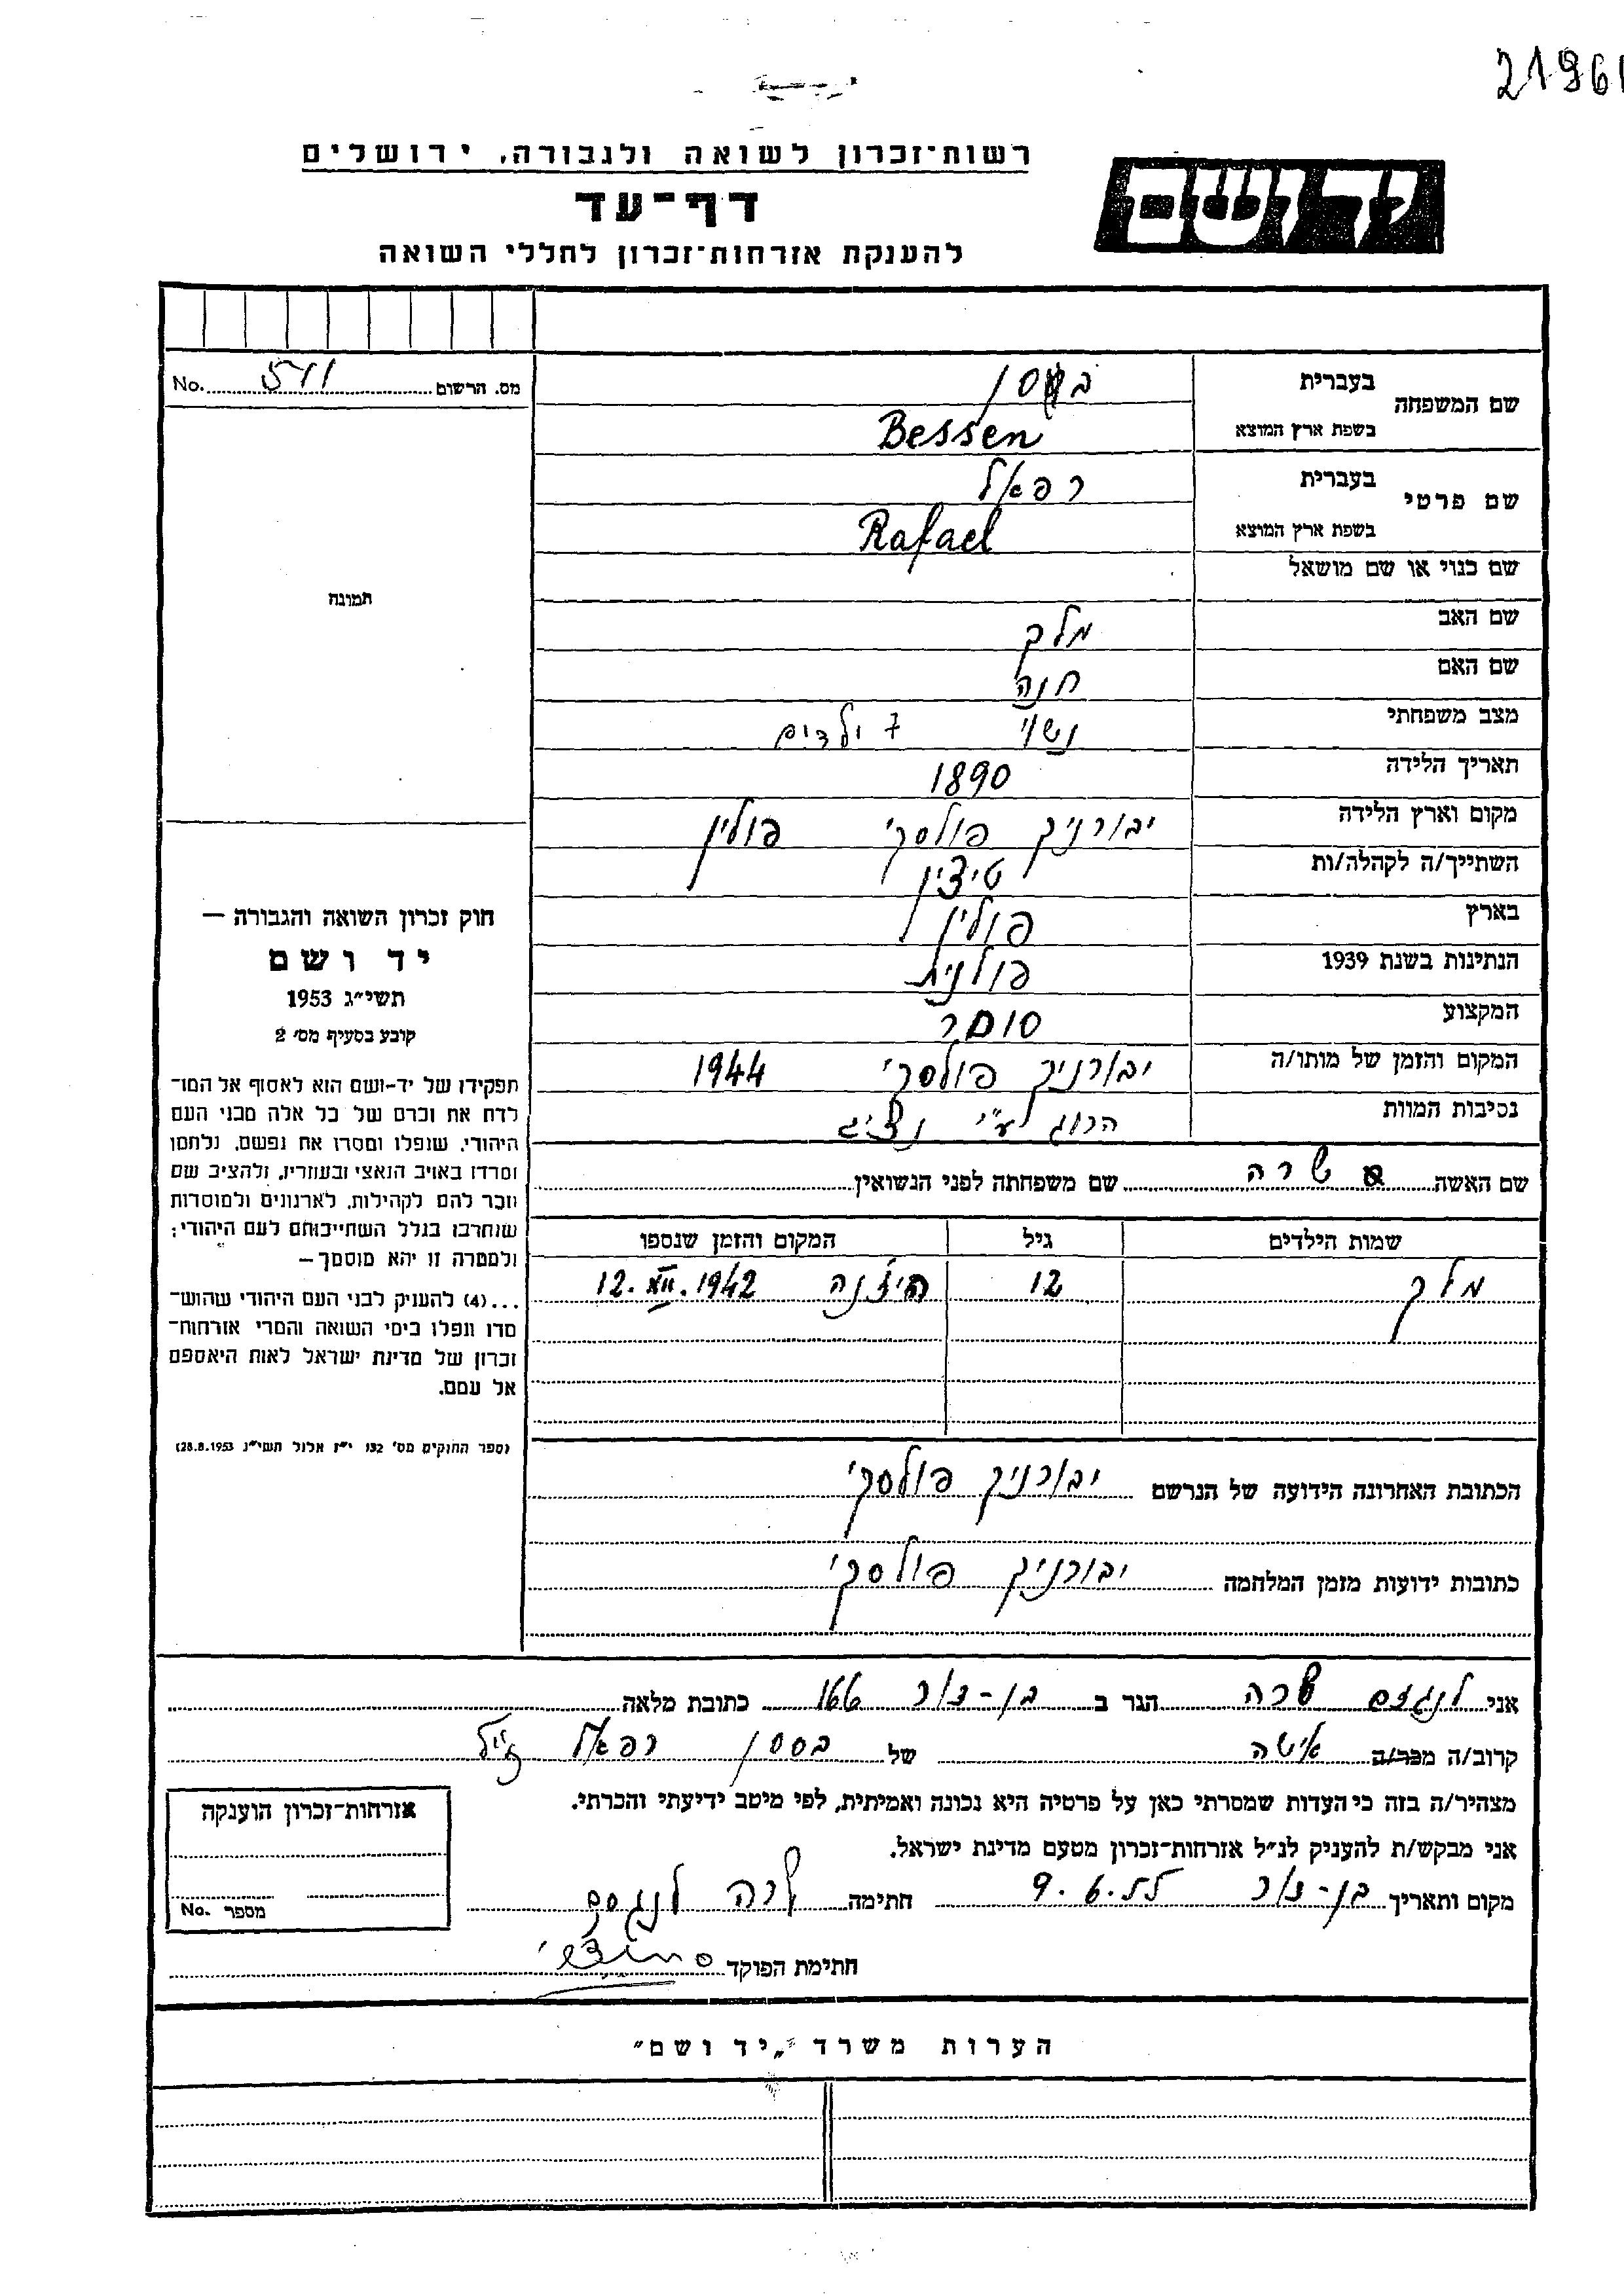 21961
רשות־זכרון לשואה ולגבורה, ירושלים
יד ושם
דף־עד
להענקת אזרחות־זכרון לחללי השואה
מס. הרשום 511 No.
שם המשפחה בעברית בססן
בשפת ארץ המוצא Bessen
שם פרטי בעברית רפאל
בשפת ארץ המוצא Rafael
שם כנוי או שם מושאל
תמונה
שם האב מלך
שם האם חנה
מצב משפחתי נשוי 7 ילדים
תאריך הלידה 1890
מקום וארץ הלידה יבורניק פולסקי פולין
השתייך/ה לקהלה/ות טיצין
בארץ פולין
הנתינות בשנת 1939 פולנית
המקצוע סוחר
המקום והזמן של מותו/ה יבורניק פולסקי 1944
נסיבות המוות הרוג ע״י
שם האשה שרה שם משפחתה לפני הנשואין
שמות הילדים גיל המקום והזמן שנספו
מלך 12 12.XII.1942
חוק זכרון השואה והגבורה —
יד ושם
תשי״ג 1953
קובע בסעיף מס׳ 2
תפקידו של יד־ושם הוא לאסוף אל המו־
לדת את זכרם של כל אלה מבני העם
היהודי, שנפלו ומסרו את נפשם, נלחמו
ומרדו באויב הנאצי ובעוזריו, ולהציב שם
וזכר להם לקהילות, לארגונים ולמוסדות
שנחרבו בגלל השתייכותם לעם היהודי;
ולמטרה זו יהא מוסמך—
...(4) להעניק לבני העם היהודי שהוש־
מדו ונפלו בימי השואה והמרי אזרחות־
זכרון של מדינת ישראל לאות היאספם
אל עמם.
(ספר החוקים מס׳ 132 י״ז אלול תשי״ג 28.8.1953)
הכתובת האחרונה הידועה של הנרשם יבורניק פולסקי
כתובות ידועות מזמן המלחמה יבורניק פולסקי
אני לנגזם שרה הגר ב בן-צור 166 כתובת מלאה
קרוב/ה מכר/ה אישה של בססן רפאל ז״ל
מצהיר/ה בזה כי העדות שמסרתי כאן על פרטיה היא נכונה ואמיתית, לפי מיטב ידיעתי והכרתי.
אני מבקש/ת להעניק לנ״ל אזרחות־זכרון מטעם מדינת ישראל.
מקום ותאריך בן-צור 9.6.55 חתימה שרה לנגסם
חתימת הפוקד
אזרחות־זכרון הוענקה
מספר No.
הערות משרד „יד ושם״